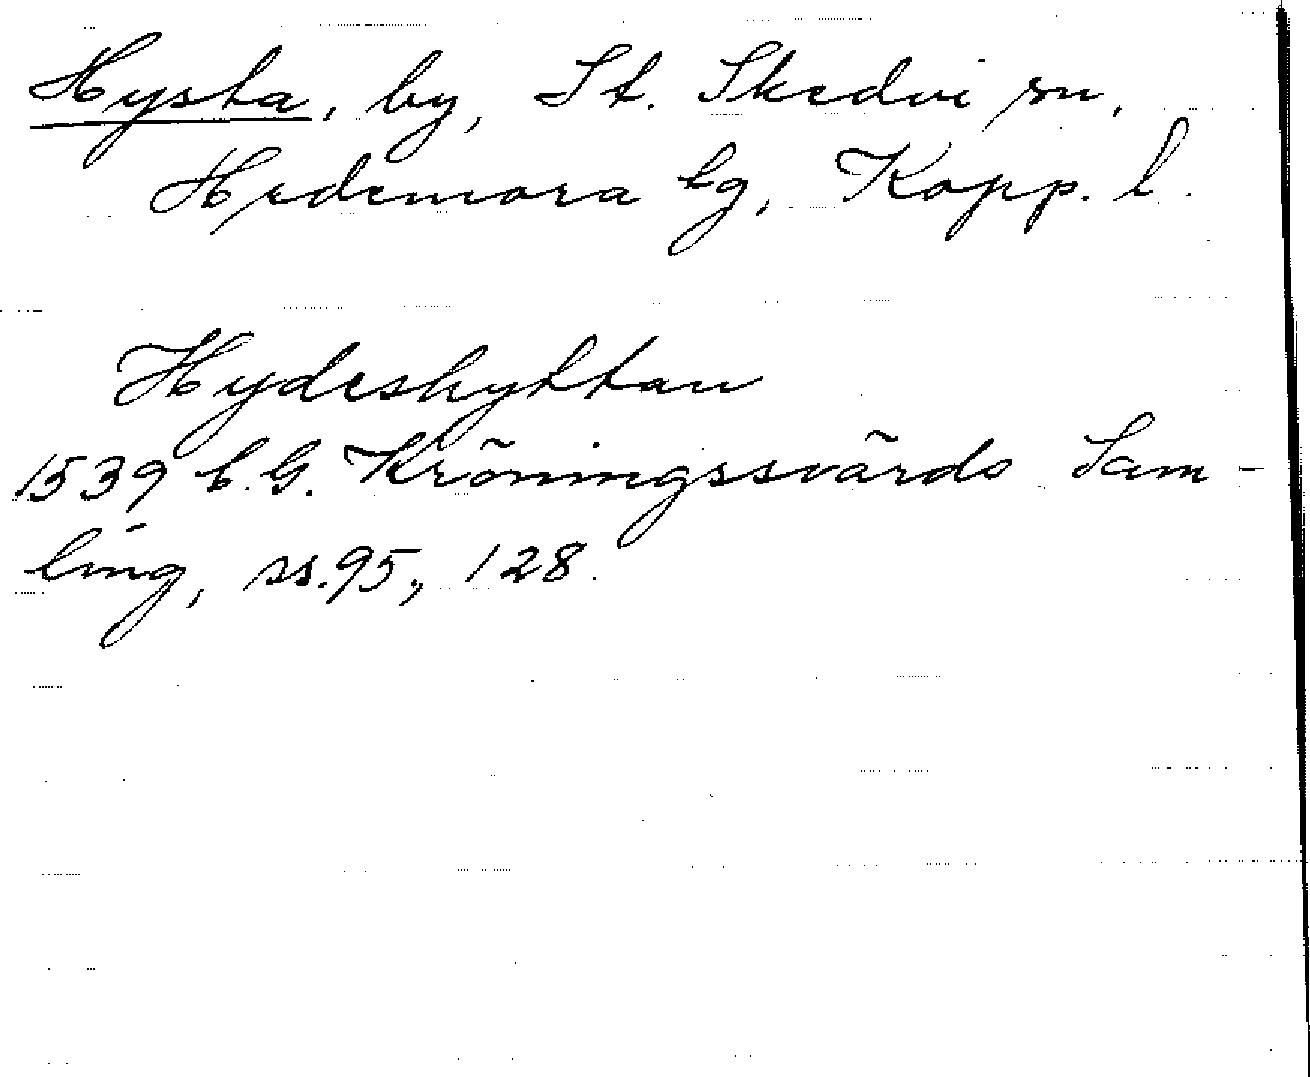 Hysta, by, St. Skedvi sn,
Hedemora tg, Kopp. l.
Hydeshyttan
1539 C.G. Kröningssvärds Sam-
ling, ss. 95, 128.